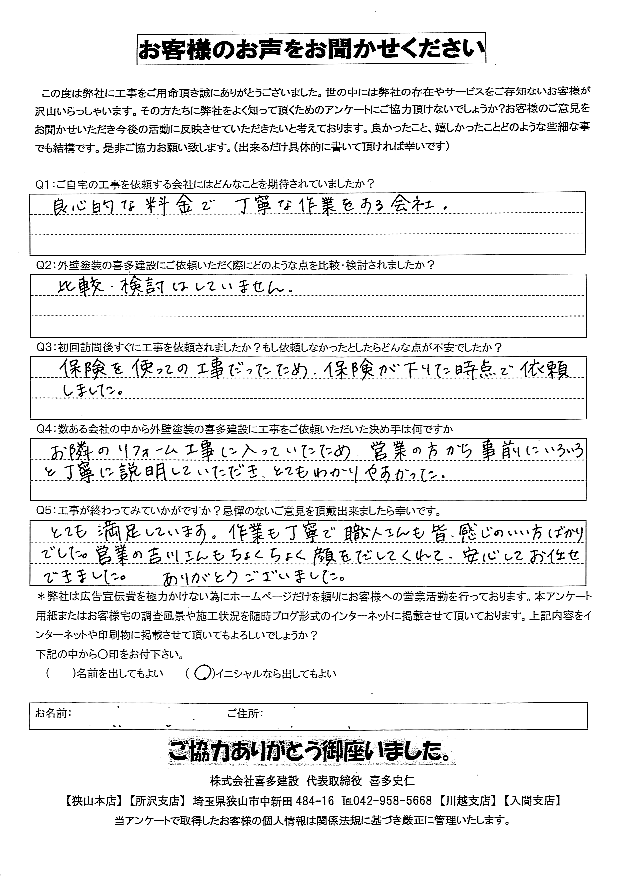 お客様のお声をお聞かせください
この度は弊社に工事をご用命頂き誠にありがとうございました。世の中には弊社の存在やサービスをご存知ないお客様が
沢山いらっしゃいます。その方たちに弊社をよく知って頂くためのアンケートにご協力頂けないでしょうか?お客様のご意見を
お聞かせいただき今後の活動に反映させていただきたいと考えております。良かったこと、嬉しかったことどのような些細な事
でも結構です。是非ご協力お願い致します。(出来るだけ具体的に書いて頂ければ幸いです)
Q1:ご自宅の工事を依頼する会社にはどんなことを期待されていましたか?
良心的な料金で 丁寧な作業をある会社.
Q2:外壁塗装の喜多建設にご依頼いただく際にどのような点を比較・検討されましたか?
比較・検討はしていません.
Q3:初回訪問後すぐに工事を依頼されましたか?もし依頼しなかったとしたらどんな点が不安でしたか?
保険を使っての工事だったため、保険が下りた時点で依頼
しました。
Q4:数ある会社の中から外壁塗装の喜多建設に工事をご依頼いただいた決め手は何ですか
お隣のリフォーム工事に入っていたため 営業の方から事前にいろいろ
と丁寧に説明していただき、とてもわかりやすかった.
Q5:工事が終わってみていかがですか?忌憚のないご意見を頂戴出来ましたら幸いです。
とても満足しています。作業も丁寧で職人さんも皆、感じのいい方ばかり
でした。営業の吉川さんもちょくちょく顔をだしてくれて、安心してお任せ
できました。 ありがとうございました。
*弊社は広告宣伝費を極力かけない為にホームページだけを頼りにお客様への営業活動を行っております。本アンケート
用紙またはお客様宅の調査風景や施工状況を随時ブログ形式のインターネットに掲載させて頂いております。上記内容をイ
ンターネットや印刷物に掲載させて頂いてもよろしいでしょうか?
下記の中から〇印をお付下さい。
( )名前を出してもよい (〇)イニシャルなら出してもよい
お名前: ご住所:
ご協力ありがとう御座いました。
株式会社喜多建設 代表取締役 喜多史仁
【狭山本店】【所沢支店】 埼玉県狭山市中新田484-16 ℡042-958-5668 【川越支店】【入間支店】
当アンケートで取得したお客様の個人情報は関係法規に基づき厳正に管理いたします。